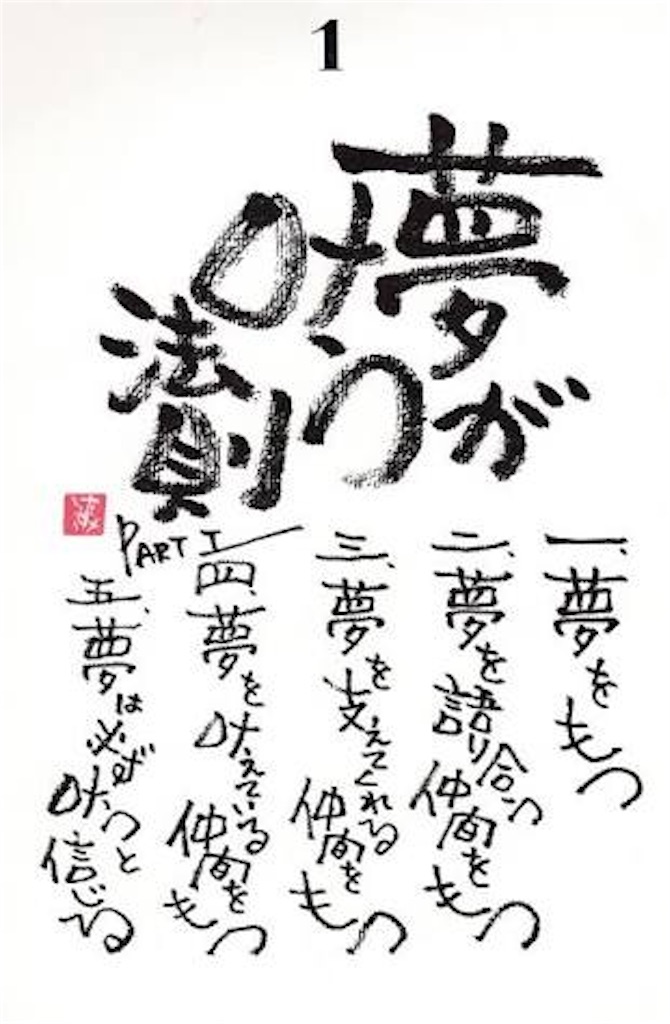 1
夢が
叶う
法則
PART I
一、夢をもつ
二、夢を語り合う仲間をもつ
三、夢を支えてくれる仲間をもつ
四、夢を叶えている仲間をもつ
五、夢は必ず叶うと信じる